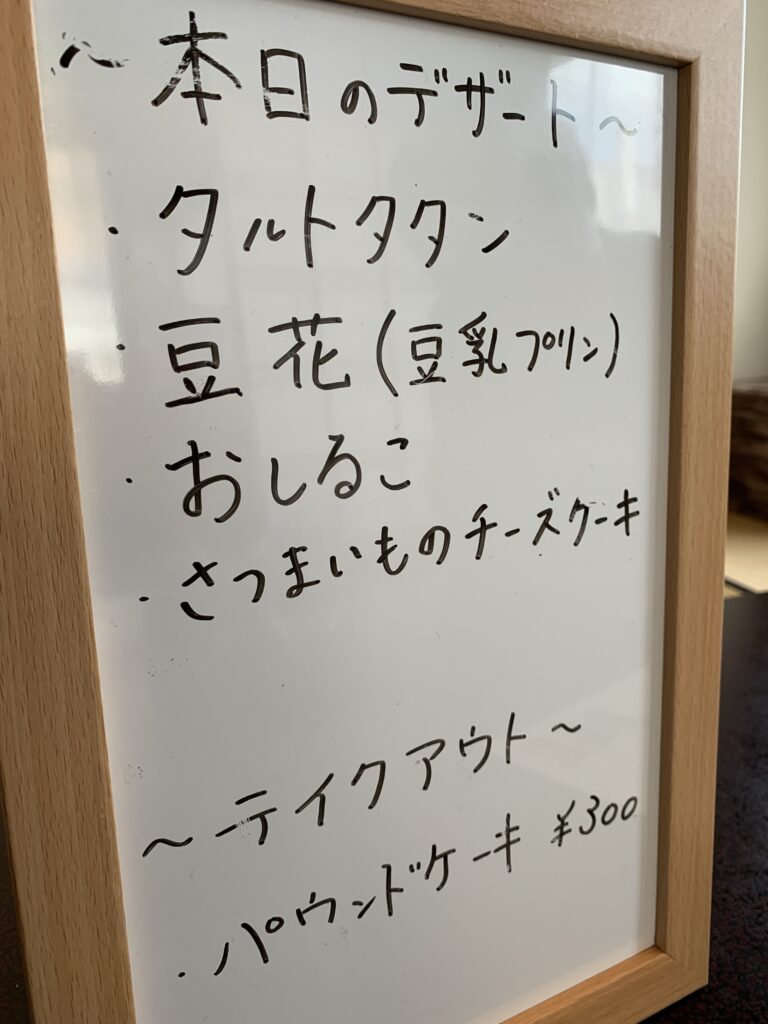 ～本日のデザート～
・タルトタタン
・豆花(豆乳プリン)
・おしるこ
・さつまいものチーズケーキ
～テイクアウト～
・パウンドケーキ ¥300